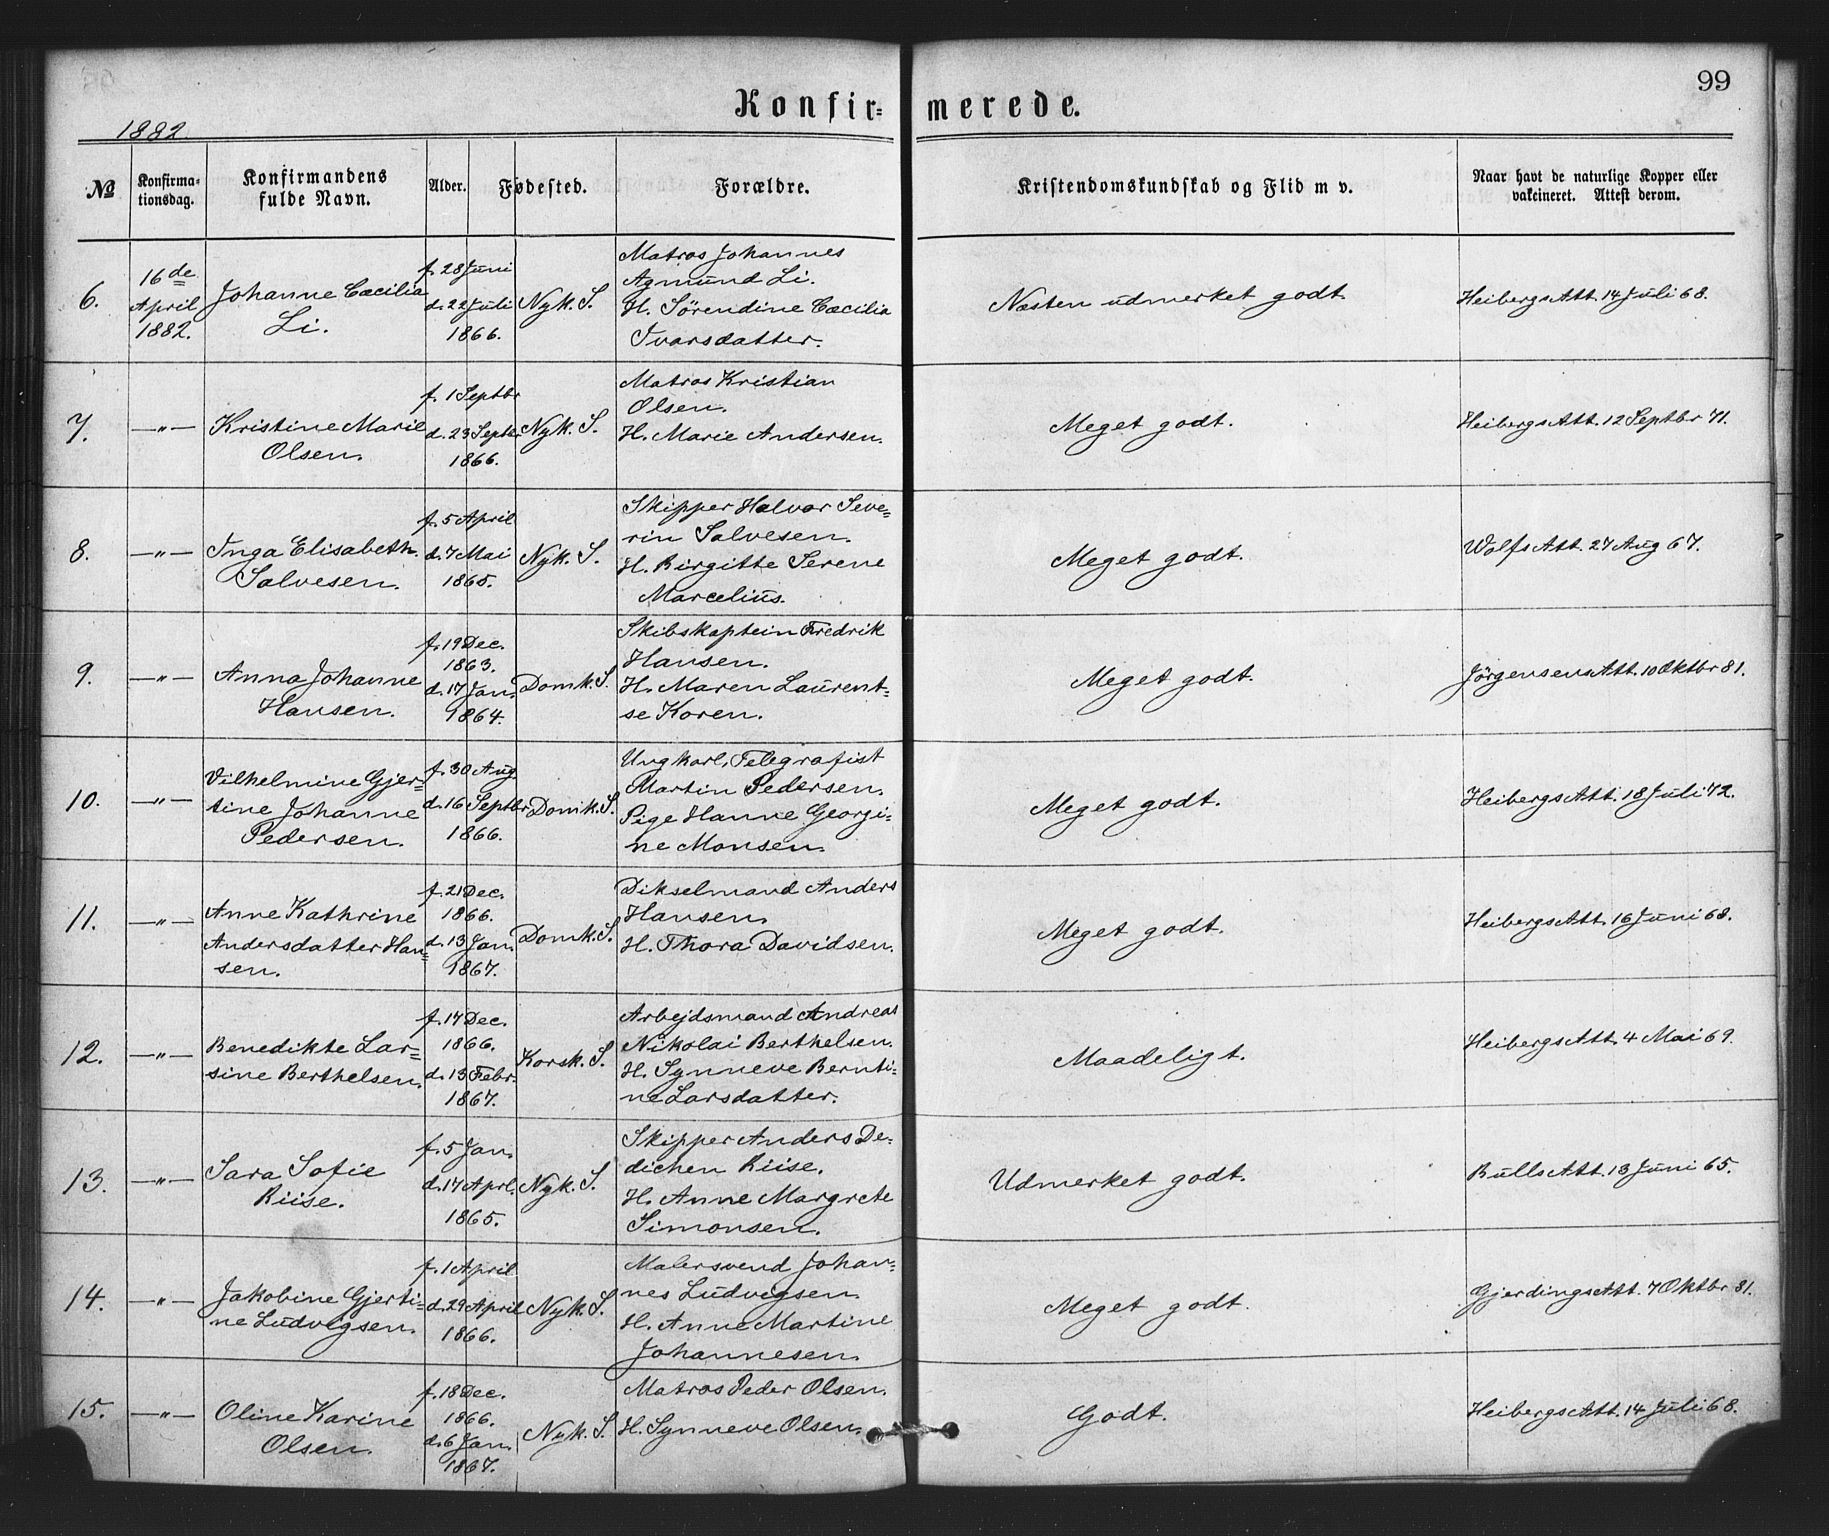 99
Konfir=merede.
1882
No
Konfirma=
tionsdag.
Konfirmandens
fulde Navn.
Alder.
Fødested.
Forældre.
Kristendomskundskab og Flid m v.
Naar havt de naturlige Kopper eller
vakcineret. Attest derom.
6.
16de
April
1882.
Johanne Cæcilia
Li.
f. 28 Juni
d. 22 Juli
1866.
Nyk. S.
Matros Johannes
Agmund Li.
H. Sørendine Cæcilia
Ivarsdatter.
Næsten udmerket godt.
Heibergs Att. 14 Juli 68.
7.
—"—
Kristine Marie
Olsen.
f. 1 Septbr
d. 23 Septbr
1866.
Nyk. S.
Matros Kristian
Olsen.
H. Marie Andersen.
Meget godt.
Heibergs Att. 12 Septbr 71.
8.
—"—
Inga Elisabeth
Salvesen.
f. 5 April
d. 7 Mai
1865.
Nyk. S.
Skipper Halvor Seve=
rin Salvesen.
H. Birgitte Serene
Marcelius.
Meget godt.
Wolfs Att. 27 Aug 67.
9.
—"—
Anna Johanne
Hansen.
f. 19 Dec.
1863.
d. 17 Jan.
1864.
Domk. S.
Skibskaptein Fredrik
Hansen.
H. Maren Laurent=
se Koren.
Meget godt.
Jörgensens Att. 10 Oktbr 81.
10.
—"—
Vilhelmine Gjer=
tine Johanne
Pedersen.
f. 30 Aug
d. 16 Septbr
1866.
Domk. S.
Ungkarl, Telegrafist
Martin Pedersen.
Pige Hanne Georgi=
ne Monsen.
Meget godt.
Heibergs Att. 18 Juli 72.
11.
—"—
Anne Kathrine
Andersdatter Han=
sen.
f. 21 Dec.
1866.
d. 13 Jan.
1867.
Domk. S.
Dikselmand Anders
Hansen.
H. Thora Davidsen.
Meget godt.
Heibergs Att. 16 Juni 68.
12.
—"—
Benedikte Lar=
sine Berthelsen.
f. 17 Dec.
1866.
d. 13 Febr.
1867.
Korsk. S.
Arbejdsmand Andreas
Nikolai Berthelsen.
H. Synneve Bernti=
ne Larsdatter.
Maadeligt.
Heibergs Att. 4 Mai 69.
13.
—"—
Sara Sofie
Riise.
f. 5 Jan.
d. 17 Aprl.
1865.
Nyk. S.
Skipper Anders De=
dichen Riise.
H. Anne Margrete
Simonsen.
Udmerket godt.
Bulls Att. 13 Juni 65.
14.
—"—
Jakobine Gjerti=
ne Ludvigsen.
f. 1 April
d. 29 April
1866.
Nyk. S.
Malersvend Johan=
nes Ludvigsen.
H. Anne Martine
Johannesen.
Meget godt.
Gjerdings Att. 7 Oktbr 81.
15.
—"—
Oline Karine
Olsen.
f. 18 Dec.
1866.
d. 6 Jan.
1867.
Nyk. S.
Matros Peder Olsen.
H. Synneve Olsen.
Godt.
Heibergs Att. 14 Juli 68.